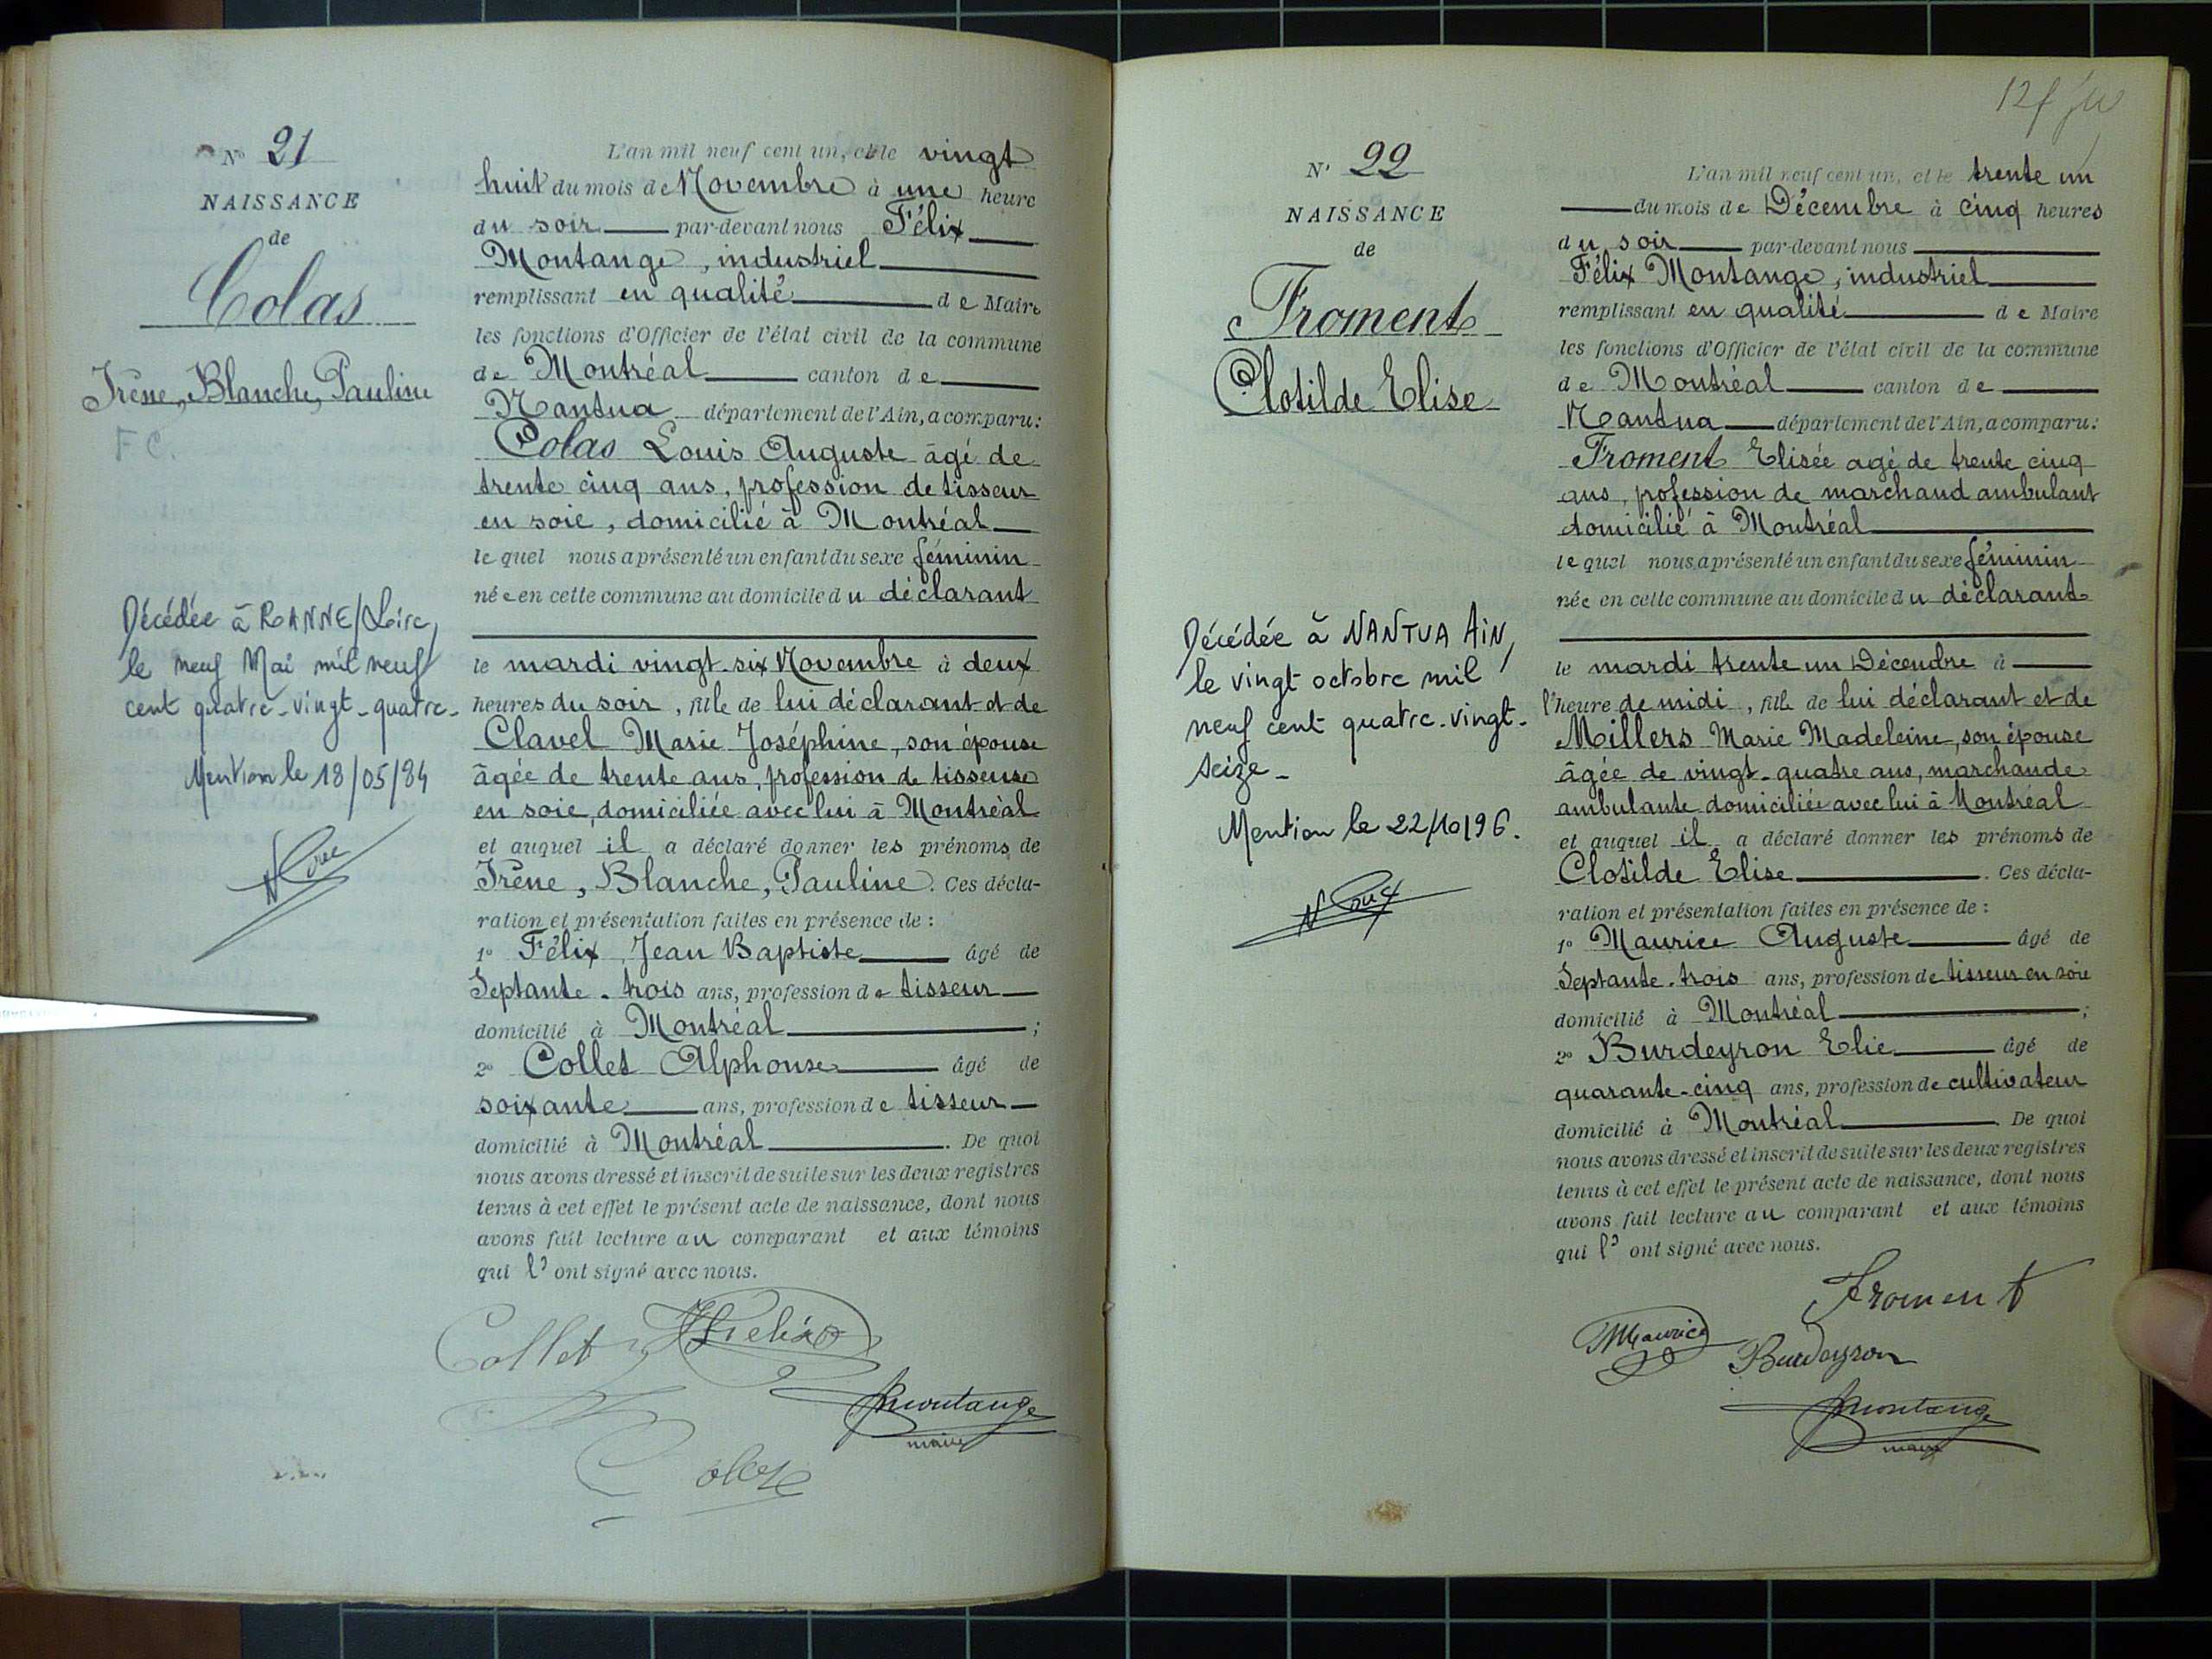 N° 21
NAISSANCE
de
Colas
Irène, Blanche, Pauline
F C.
Décédée à ROANNE/Loire,
le neuf Mai mil neuf
cent quatre-vingt-quatre-
Mention le 18/05/84
L'an mil neuf cent un, et le vingt
huit du mois de Novembre à une heure
du soir par-devant nous Félix
Montange, industriel
remplissant en qualité de Maire
les fonctions d'Officier de l'état civil de la commune
de Montréal canton de
Nantua département de l'Ain, a comparu:
Colas Louis Auguste âgé de
trente cinq ans, profession de tisseur
en soie, domicilié à Montréal
lequel nous a présenté un enfant du sexe féminin
née en cette commune au domicile du déclarant
le mardi vingt-six Novembre à deux
heures du soir, fille de lui déclarant et de
Clavel Marie Joséphine, son épouse
âgée de trente ans, profession de tisseuse
en soie, domiciliée avec lui à Montréal
et auquel il a déclaré donner les prénoms de
Irène, Blanche, Pauline. Ces décla-
ration et présentation faites en présence de :
1° Félix Jean Baptiste âgé de
Septante-trois ans, profession de tisseur
domicilié à Montréal ;
2° Collet Alphonse âgé de
soixante ans, profession de tisseur
domicilié à Montréal. De quoi
nous avons dressé et inscrit de suite sur les deux registres
tenus à cet effet le présent acte de naissance, dont nous
avons fait lecture au comparant et aux témoins
qui l'ont signé avec nous.
Collet Félix
Montange
maire
Colas
N° 22
NAISSANCE
de
Froment
Clotilde Elise
Décédée à NANTUA AIN,
le vingt octobre mil
neuf cent quatre-vingt-
seize-
Mention le 22/10/96.
L'an mil neuf cent un, et le trente un
du mois de Décembre à cinq heures
du soir par-devant nous
Félix Montange, industriel
remplissant en qualité de Maire
les fonctions d'Officier de l'état civil de la commune
de Montréal canton de
Nantua département de l'Ain, a comparu:
Froment Elisée agé de trente cinq
ans, profession de marchand ambulant
domicilié à Montréal
lequel nous a présenté un enfant du sexe féminin
née en cette commune au domicile du déclarant
le mardi trente un Décembre à
l'heure de midi, fille de lui déclarant et de
Millers Marie Madeleine, son épouse
âgée de vingt-quatre ans, marchande
ambulante domiciliée avec lui à Montréal
et auquel il a déclaré donner les prénoms de
Clotilde Elise. Ces décla-
ration et présentation faites en présence de :
1° Maurice Auguste âgé de
Septante-trois ans, profession de tisseur en soie
domicilié à Montréal ;
2° Burdeyron Elie âgé de
quarante-cinq ans, profession de cultivateur
domicilié à Montréal. De quoi
nous avons dressé et inscrit de suite sur les deux registres
tenus à cet effet le présent acte de naissance, dont nous
avons fait lecture au comparant et aux témoins
qui l'ont signé avec nous.
Froment
Maurice
Burdeyron
Montange
maire